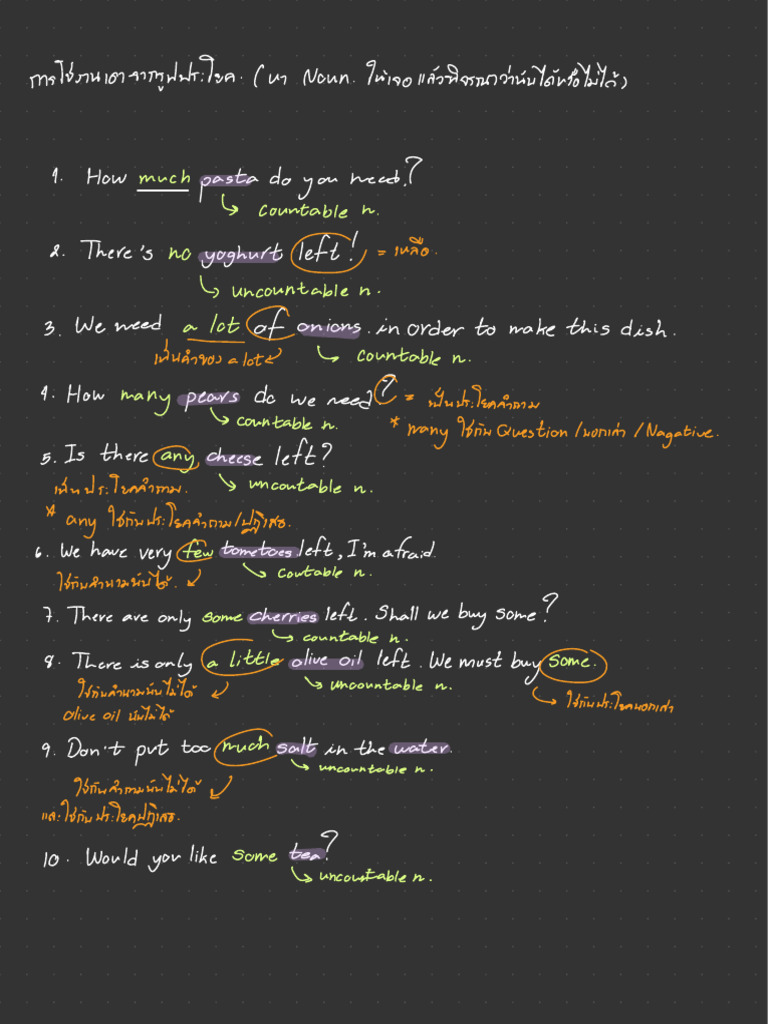 การใช้งานเดาจากรูปประโยค. (หา Noun. ให้เจอ แล้วพิจรณาว่านับได้หรือไม่ได้)
1. How much pasta do you need?
countable n.
2. There's no yoghurt left! = เหลือ.
uncountable n.
3. We need a lot of onions. in order to make this dish.
เป็นคำของ a lot countable n.
4. How many pears do we need? = เป็นประโยคคำถาม
countable n. * many ใช้กับ Question /บอกเล่า / Nagative.
5. Is there any cheese left?
เป็นประโยคคำถาม. uncountable n.
* any ใช้กับประโยคคำถาม/ปฏิเสธ.
6. We have very few tometoes left, I'm afraid.
ใช้กับคำนามนับได้. countable n.
7. There are only some cherries left. Shall we buy some?
countable n.
8. There is only a little olive oil left. We must buy some.
ใช้กับคำนามนับไม่ได้ uncountable n. ใช้กับประโยคบอกเล่า
olive oil นับไม่ได้
9. Don't put too much salt in the water.
uncountable n.
ใช้กับคำนามนับไม่ได้
และใช้กับประโยคปฏิเสธ.
10. Would you like some tea?
uncountable n.